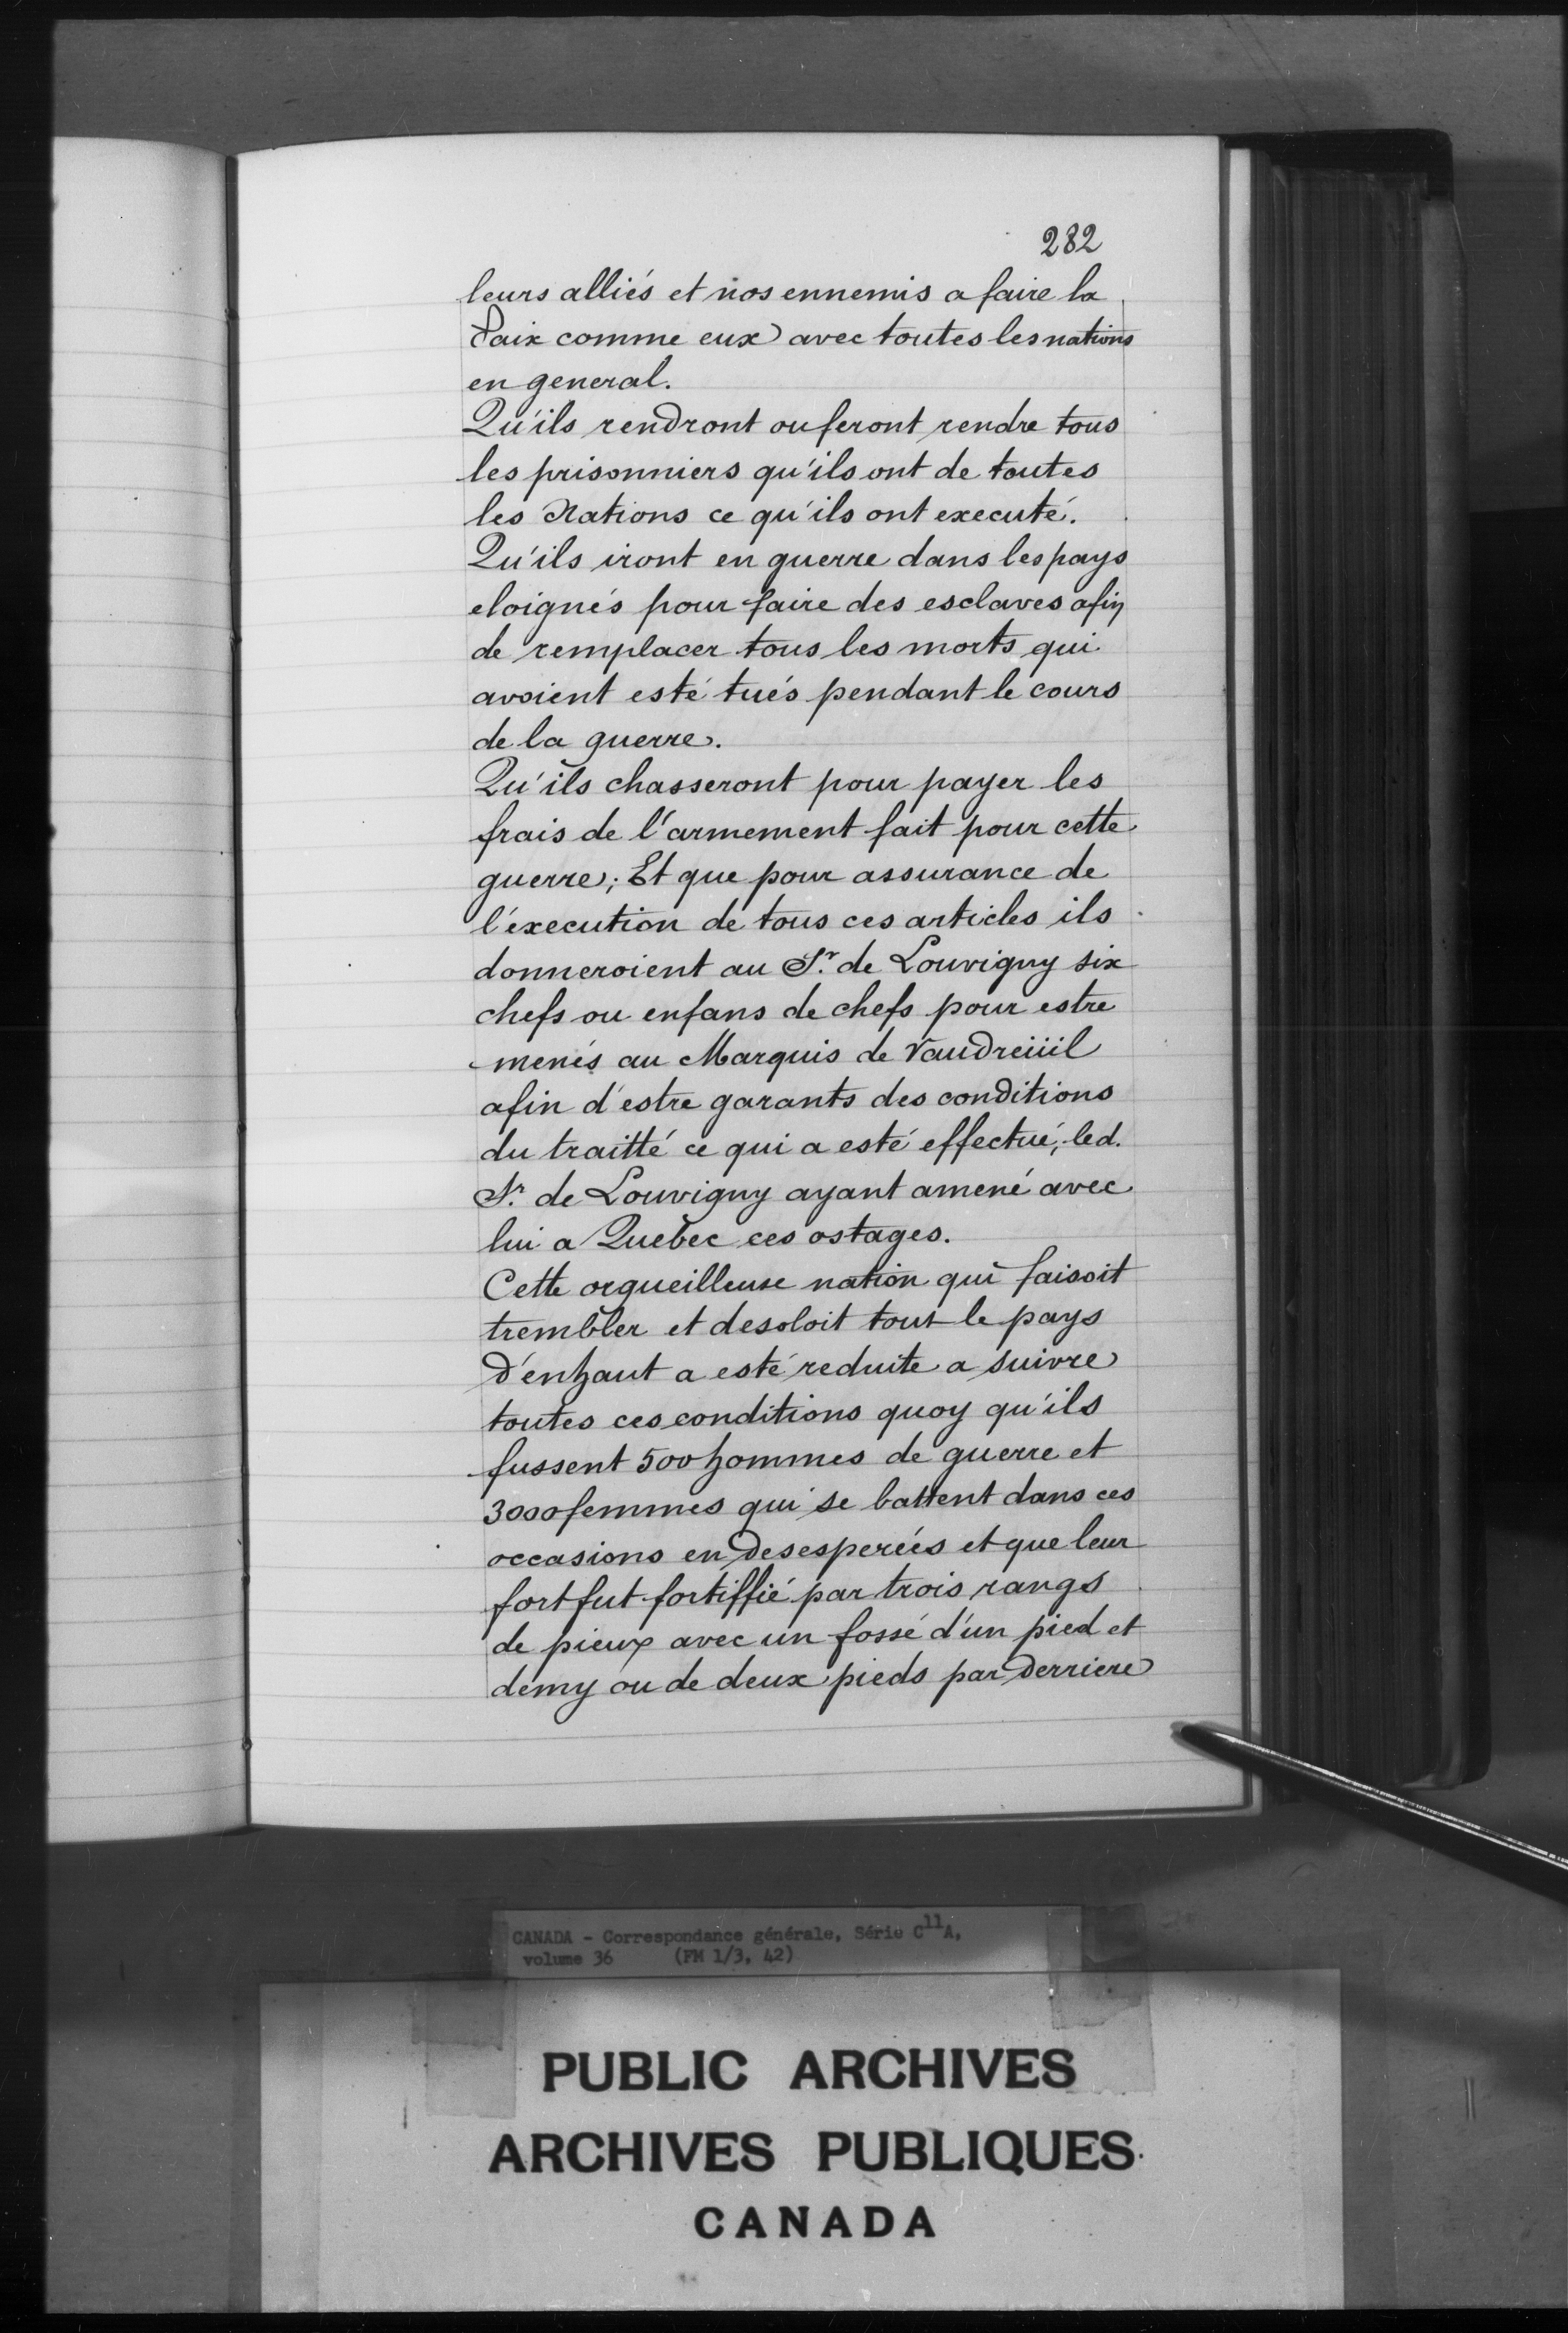 282
leurs alliés et nos ennemis a faire la
Paix comme eux avec toutes les nations
en general.
Qu'ils rendront ou feront rendre tous
les prisonniers qu'ils ont de toutes
les Nations ce qu'ils ont executé.
Qu'ils iront en guerre dans les pays
eloignés pour faire des esclaves afin
de remplacer tous les morts qui
avoient esté tués pendant le cours
de la guerre.
Qu'ils chasseront pour payer les
frais de l'armement fait pour cette
guerre; Et que pour assurance de
l'execution de tous ces articles ils
donneroient au Sr. de Louvigny six
chefs ou enfans de chefs pour estre
menés au Marquis de Vaudreüil
afin d'estre garants des conditions
du traitté ce qui a esté effectué, led.
Sr. de Louvigny ayant amené avec
lui a Quebec ces ostages.
Cette orgueilleuse nation qui faisoit
trembler et desoloit tout le pays
d'enhaut a esté reduite a suivre
toutes ces conditions quoy qu'ils
fussent 500 hommes de guerre et
3000 femmes qui se battent dans ces
occasions en desesperées et que leur
fort fut fortiffié par trois rangs
de pieux avec un fossé d'un pied et
demy ou de deux pieds par derriere
CANADA - Correspondance générale, Série C11A,
volume 36 (FM 1/3, 42)
PUBLIC ARCHIVES
ARCHIVES PUBLIQUES
CANADA